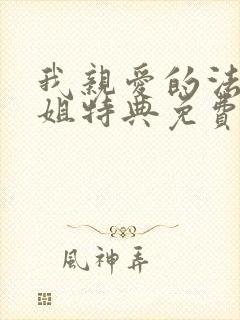 我親愛的法
姐特典免費
風神弄